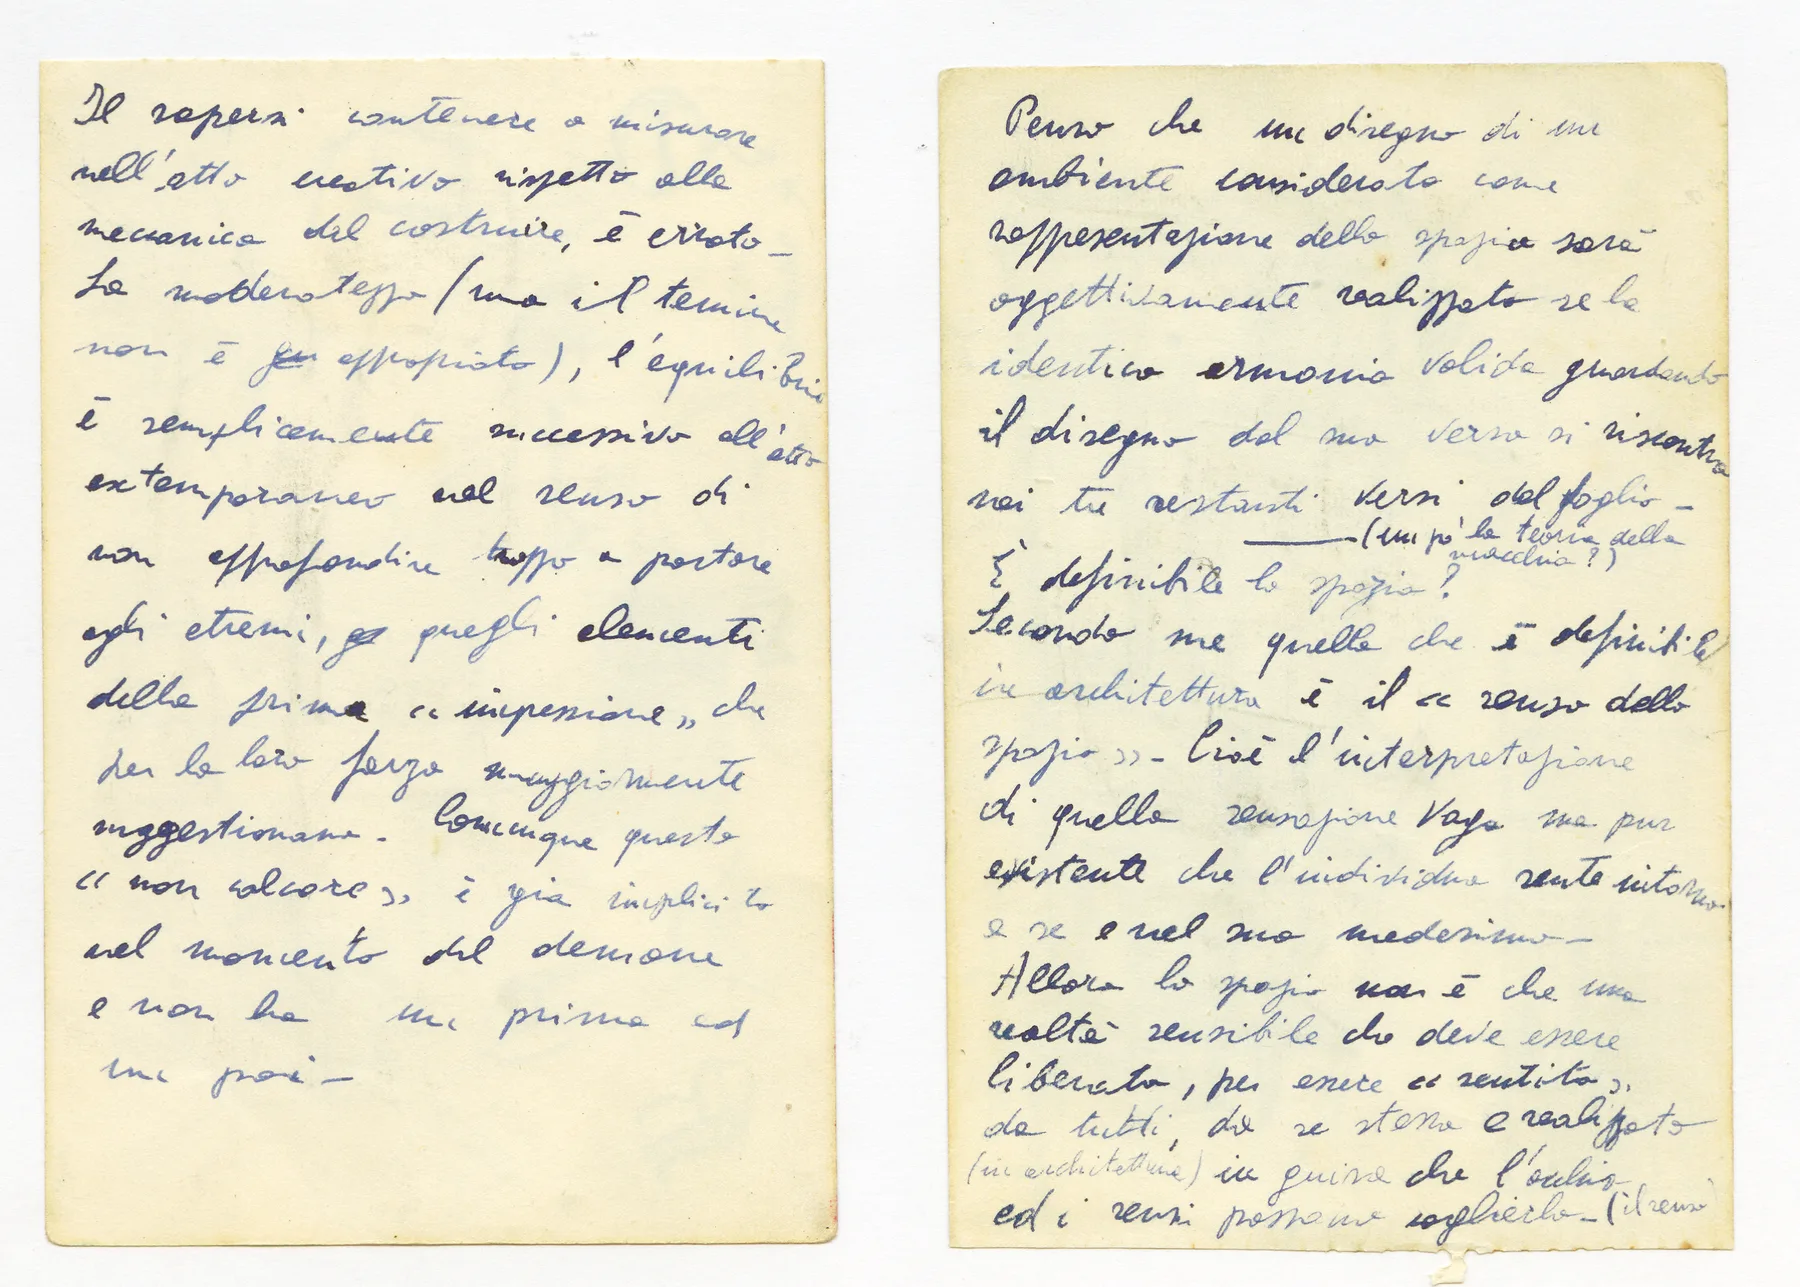 Il sapersi contenere o misurare
nell'atto creativo rispetto alla
meccanica del costruire, è errato_
La moderatezza (ma il temine
non è appropiato), l'equilibrio
è semplicemente successivo all'atto
extemporaneo nel senso di
non approfondire troppo o portare
agli etremi, quegli elementi
della prima “impessione„ che
per la loro forza maggiormente
suggestionano - Comunque questo
“non calcare” è già implicito
nel momento del demone
e non ha un prima ed
un poi -
Penso che un disegno di un
ambiente considerato come
rappresentazione dello spazio sarà
oggettivamente realizzato se la
identica armonia valida guardando
il disegno dal suo verso si riscontra
nei tre restanti versi del foglio -
(un pò la teoria della
macchia?)
È definibile lo spazio?
Secondo me quello che è definibile
in architettura è il “senso dello
spazio” - Cioè l'interpretazione
di quella sensazione vaga ma pur
esistente che l'individuo sente intorno
a se e nel suo medesimo -
Allora lo spazio non è che una
realtà sensibile che deve essere
liberata, per essere “sentita”
da tutti, da se stessa e realizzata
(in architettura) in guisa che l'occhio
ed i sensi possano coglierla - (il senso)